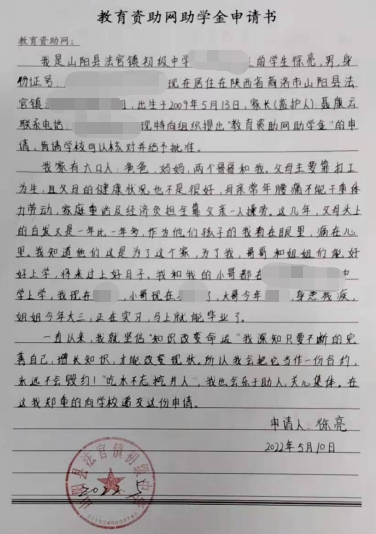 教育资助网助学金申请书
教育资助网：
我是山阳县法官镇初级中学 的学生徐亮，男，身
份证号 现在居住在陕西省商洛市山阳县法
官镇 ，出生于2009年5月13日，家长（监护人）聂康云
联系电话 现特向组织提出“教育资助网助学金”的申
请，肯请学校可以核对并给予批准。
我家有六口人：爸爸，妈妈，两个哥哥和我。父母主要靠打工
为生，且父母的健康状况也不是很好，母亲常年腰痛不能干重体
力劳动，家庭重活及经济负担全靠父亲一人操劳。这几年，父母头上
的白发又是一年比一年多，作为他们孩子的我看在眼里，痛在心
里。我知道他们这是为了这个家，为了我，哥哥和姐姐们能好
好上学，将来过上好日子。我和我的小哥都在 中
学上学，我现在 ，小哥现在 了，大哥今年 ，身患残疾，
姐姐今年大三，正在实习，马上就能毕业了。
一直以来，我就坚信“知识改变命运”我深知只要不断的完
善自己，增长知识，才能改变现状。所以我会把它当作一份合约，
永远不会毁约！“吃水不忘挖井人”，我也会乐于助人，关心集体。在
这我郑重的向学校递交这份申请。
申请人：徐亮
2022年5月10日
山阳县法官镇初级中学